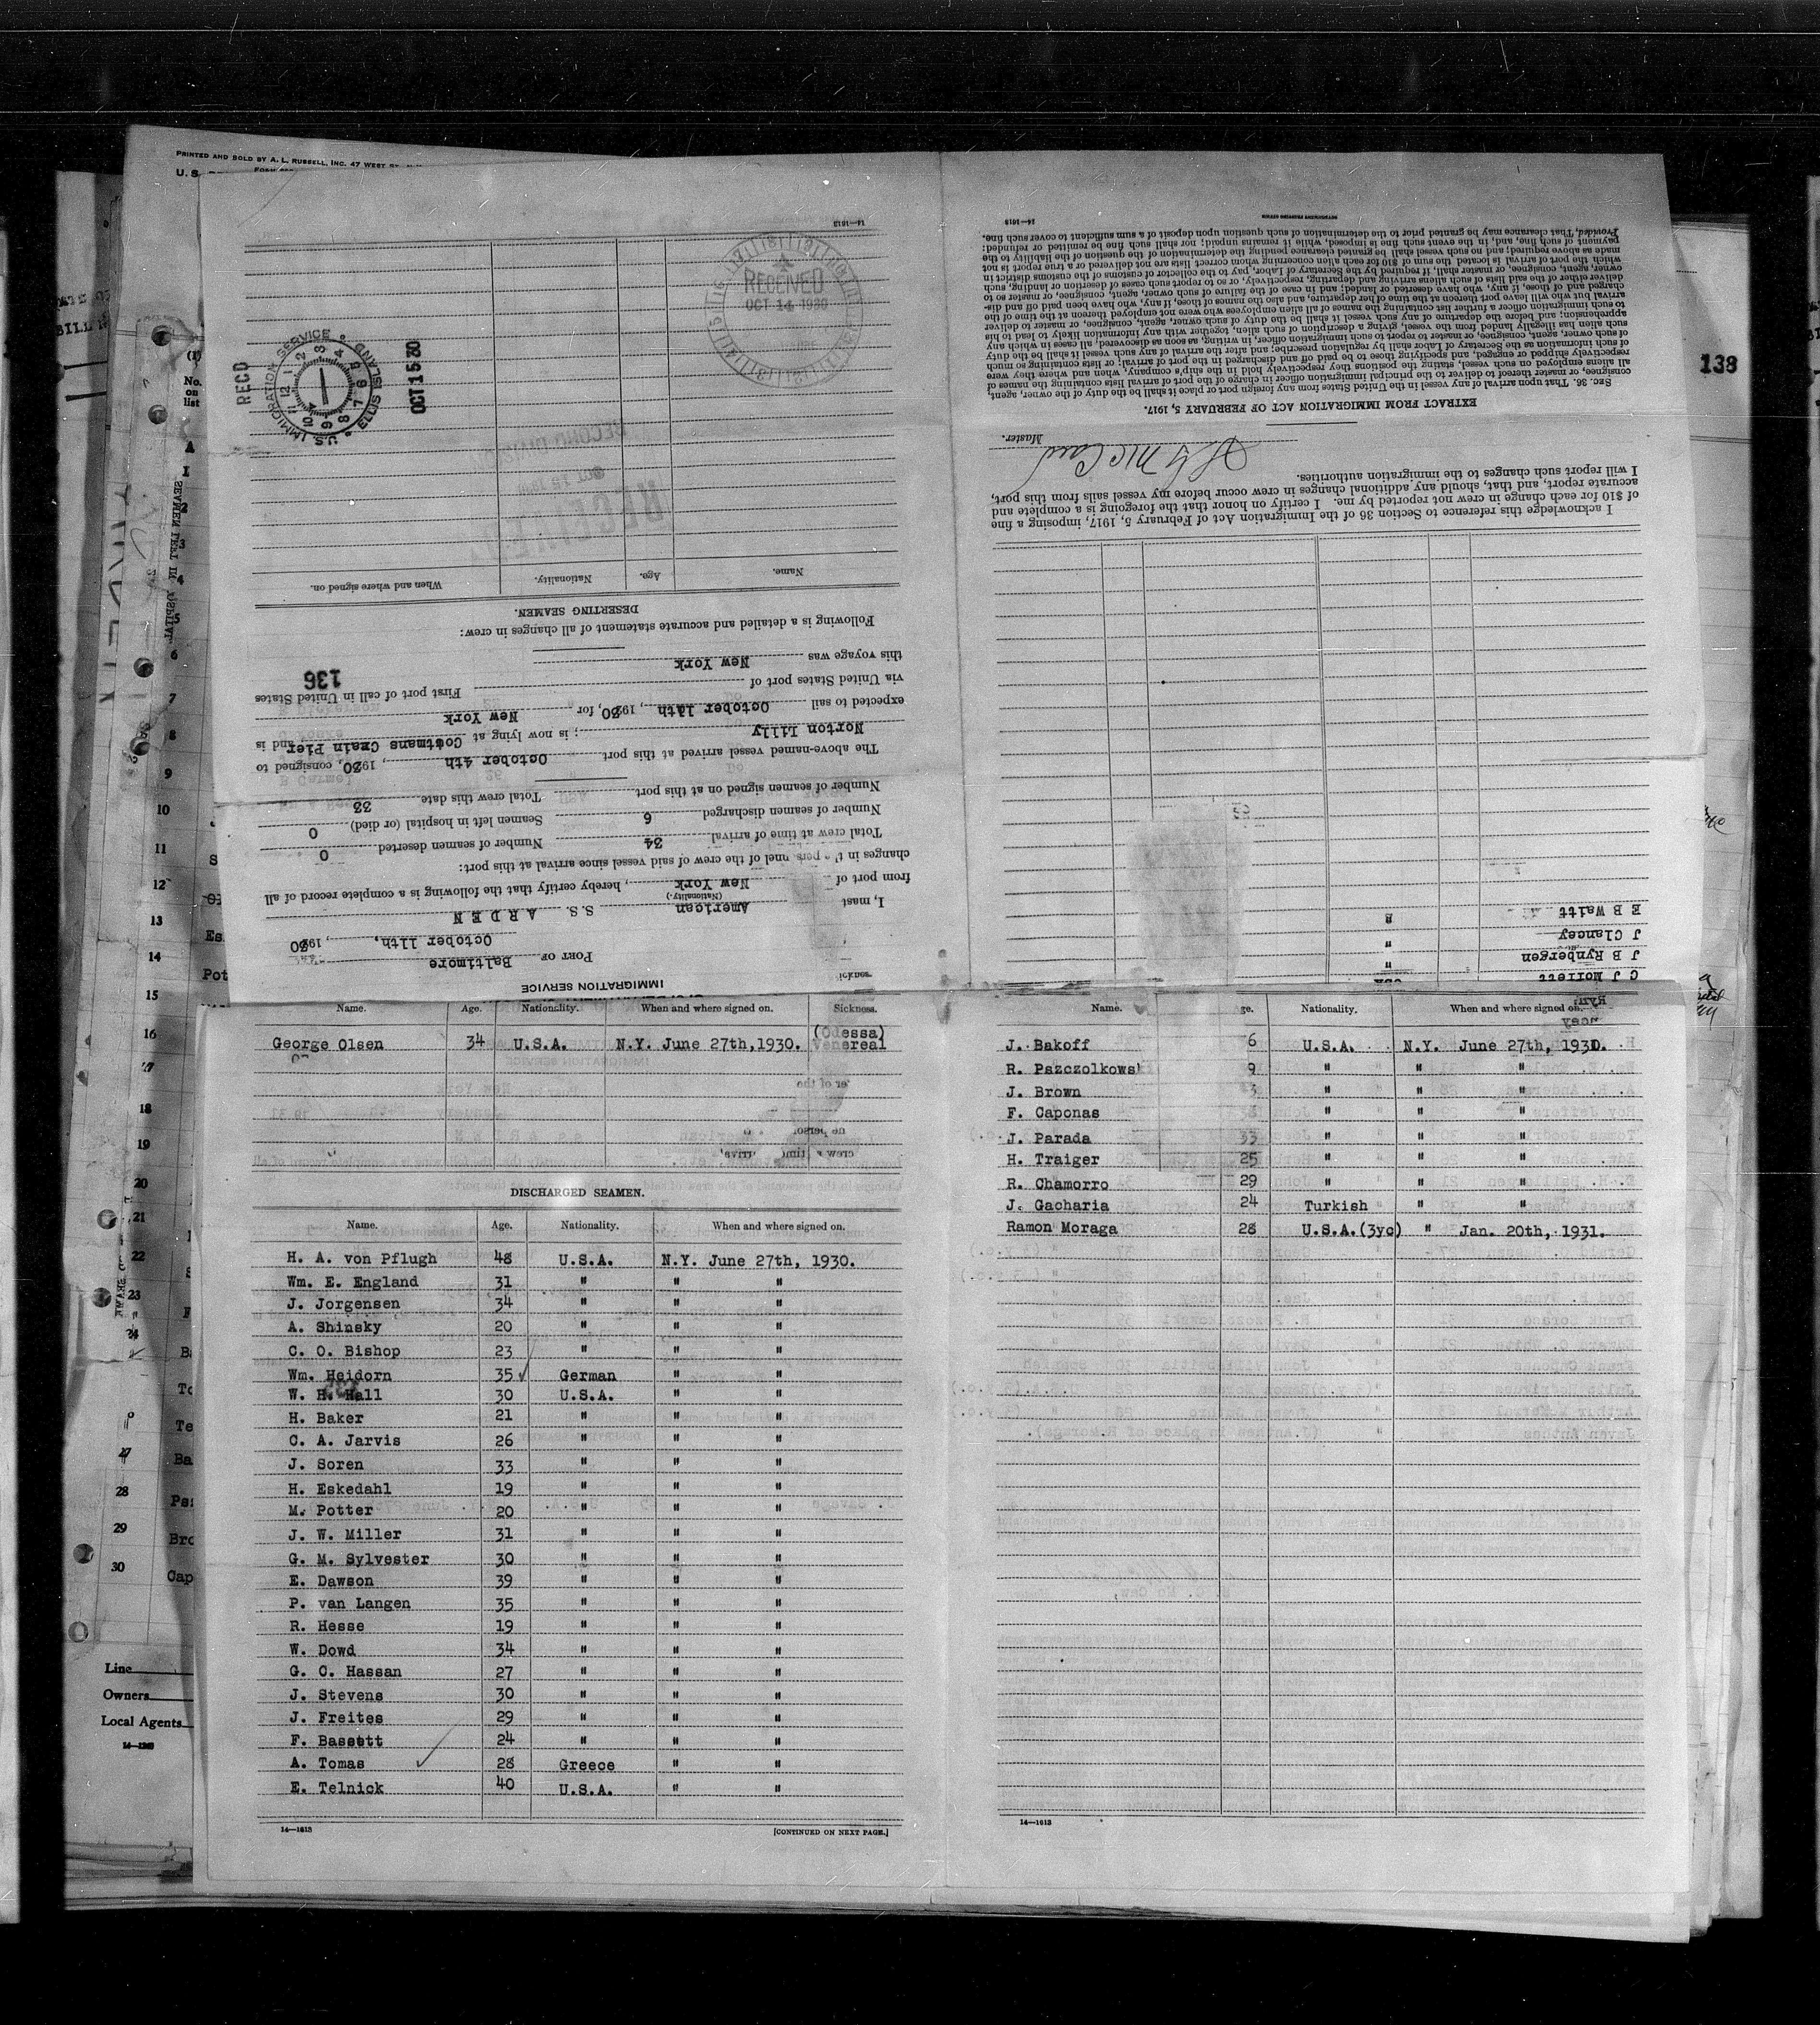 PRINTED AND SOLD BY A. L. RUSSELL, INC. 47 WEST
U. S.
138
No.
on
list
SEAMEN LEFT IN
Line
Owners
Local Agents
IMMIGRATION SERVICE
PORT OF Baltimore
October 11th, 1930
American S.S. ARDEN
(Nationality.)
from port of New York, hereby certify that the following is a complete record of all
changes in the personnel of the crew of said vessel since arrival at this port:
Total crew at time of arrival 34 Number of seamen deserted 0
Number of seamen discharged 6 Seamen left in hospital (or died) 0
Number of seamen signed on at this port Total crew this date
The above-named vessel arrived at this port October 4th, 1930, consigned to
Norton Lilly; is now lying at Cottmans Crain Pier and is
expected to sail October 14th, 1930, for New York
via United States port of First port of call in United States
136
this voyage was New York
Following is a detailed and accurate statement of all changes in crew:
DESERTING SEAMEN.
Name. Age. Nationality. When and where signed on.
RECEIVED
OCT 14 1930
U.S. IMMIGRATION SERVICE ELLIS ISLAND
RECD OCT 15 30
14—1613
C J Morrett USA
J B Rynbergen "
J Clancey "
E B Waitt "
I acknowledge this reference to Section 36 of the Immigration Act of February 5, 1917, imposing a fine
of $10 for each change in crew not reported by me. I certify on honor that the foregoing is a complete and
accurate report, and that, should any additional changes in crew occur before my vessel sails from this port,
I will report such changes to the immigration authorities.
Master.
EXTRACT FROM IMMIGRATION ACT OF FEBRUARY 5, 1917.
SEC. 36. That upon arrival of any vessel in the United States from any foreign port or place it shall be the duty of the owner, agent,
consignee, or master thereof to deliver to the principal immigration officer in charge of the port of arrival lists containing the names of
all aliens employed on such vessel, stating the positions they respectively hold in the ship's company, when and where they were
respectively shipped or engaged, and specifying those to be paid off and discharged in the port of arrival; or lists containing so much
of such information as the Secretary of Labor shall by regulation prescribe; and after the arrival of any such vessel it shall be the duty
of such owner, agent, consignee, or master to report to such immigration officer, in writing, as soon as discovered, all cases in which any
such alien has illegally landed from the vessel, giving a description of such alien, together with any information likely to lead to his
apprehension; and before the departure of any such vessel it shall be the duty of such owner, agent, consignee, or master to deliver
to such immigration officer a further list containing the names of all alien employees who were not employed thereon at the time of the
arrival but who will leave port thereon at the time of her departure, and also the names of those, if any, who have been paid off and dis-
charged and of those, if any, who have deserted or landed; and in case of the failure of such owner, agent, consignee, or master so to
deliver either of the said lists of such aliens arriving and departing, respectively, or so to report such cases of desertion or landing, such
owner, agent, consignee, or master shall, if required by the Secretary of Labor, pay to the collector of customs of the customs district in
which the port of arrival is located the sum of $10 for each alien concerning whom correct lists are not delivered or a true report is not
made as above required; and no such vessel shall be granted clearance pending the determination of the question of the liability to the
payment of such fine, and, in the event such fine is imposed, while it remains unpaid; nor shall such fine be remitted or refunded:
Provided, That clearance may be granted prior to the determination of such question upon deposit of a sum sufficient to cover such fine.
14—1613
Name. Age. Nationality. When and where signed on. Sickness.
George Olsen 34 U.S.A. N.Y. June 27th,1930. (Odessa) Venereal
DISCHARGED SEAMEN.
Name. Age. Nationality. When and where signed on.
H. A. von Pflugh 48 U.S.A. N.Y. June 27th, 1930.
Wm. E. England 31 " " "
J. Jorgensen 34 " " "
A. Shinsky 20 " " "
C. O. Bishop 23 " " "
Wm. Heidorn 35 German " "
W. H. Hall 30 U.S.A. " "
H. Baker 21 " " "
C. A. Jarvis 26 " " "
J. Soren 33 " " "
H. Eskedahl 19 " " "
M. Potter 20 " " "
J. W. Miller 31 " " "
G. M. Sylvester 30 " " "
E. Dawson 39 " " "
P. van Langen 35 " " "
R. Hesse 19 " " "
W. Dowd 34 " " "
G. C. Hassan 27 " " "
J. Stevens 30 " " "
J. Freites 29 " " "
F. Bassett 24 " " "
A. Tomas 28 Greece " "
E. Telnick 40 U.S.A. " "
14—1613 [CONTINUED ON NEXT PAGE.]
Name. Nationality. When and where signed on.
J. Bakoff 6 U.S.A. N.Y. June 27th, 1930.
R. Pszczolkowski 9 " " "
J. Brown 3 " " "
F. Caponas " " "
J. Parada 33 " " "
H. Traiger 25 " " "
R. Chamorro 29 " " "
J. Gacharia 24 Turkish " "
Ramon Moraga 28 U.S.A.(3yc) " Jan. 20th, 1931.
14—1613